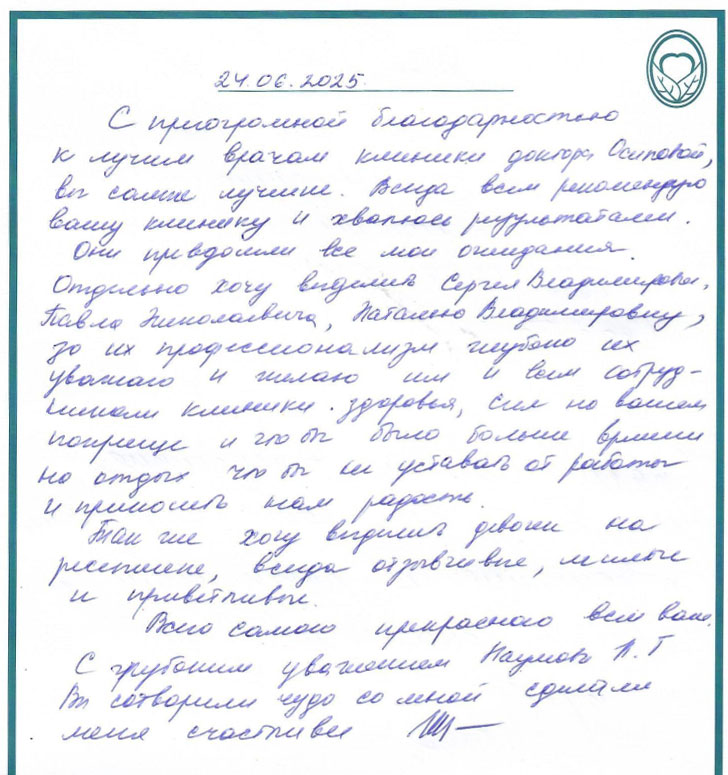 24.06.2025
С приогромной благодарностью
к лучшим врачам клиники доктора Осиповой,
вы самые лучшие. Всегда всем рекомендую
вашу клинику и хвалюсь результатами.
Они превзошли все мои ожидания.
Отдельно хочу выделить Сергея Владимировича,
Павла Николаевича, Наталью Владимировну,
за их профессионализм глубоко их
уважаю и желаю им и всем сотруд-
никам клиники здоровья, сил на вашем
поприще и что бы было больше времени
на отдых что бы не уставать от работы
и приносить нам радость.
Так же хочу выделить девочек на
ресепшене, всегда отзывчивые, милые
и приветливые.
Всего самого прекрасного всем вам.
С глубоким уважением Л. Г
Вы сотворили чудо со мной сделали
меня счастливее